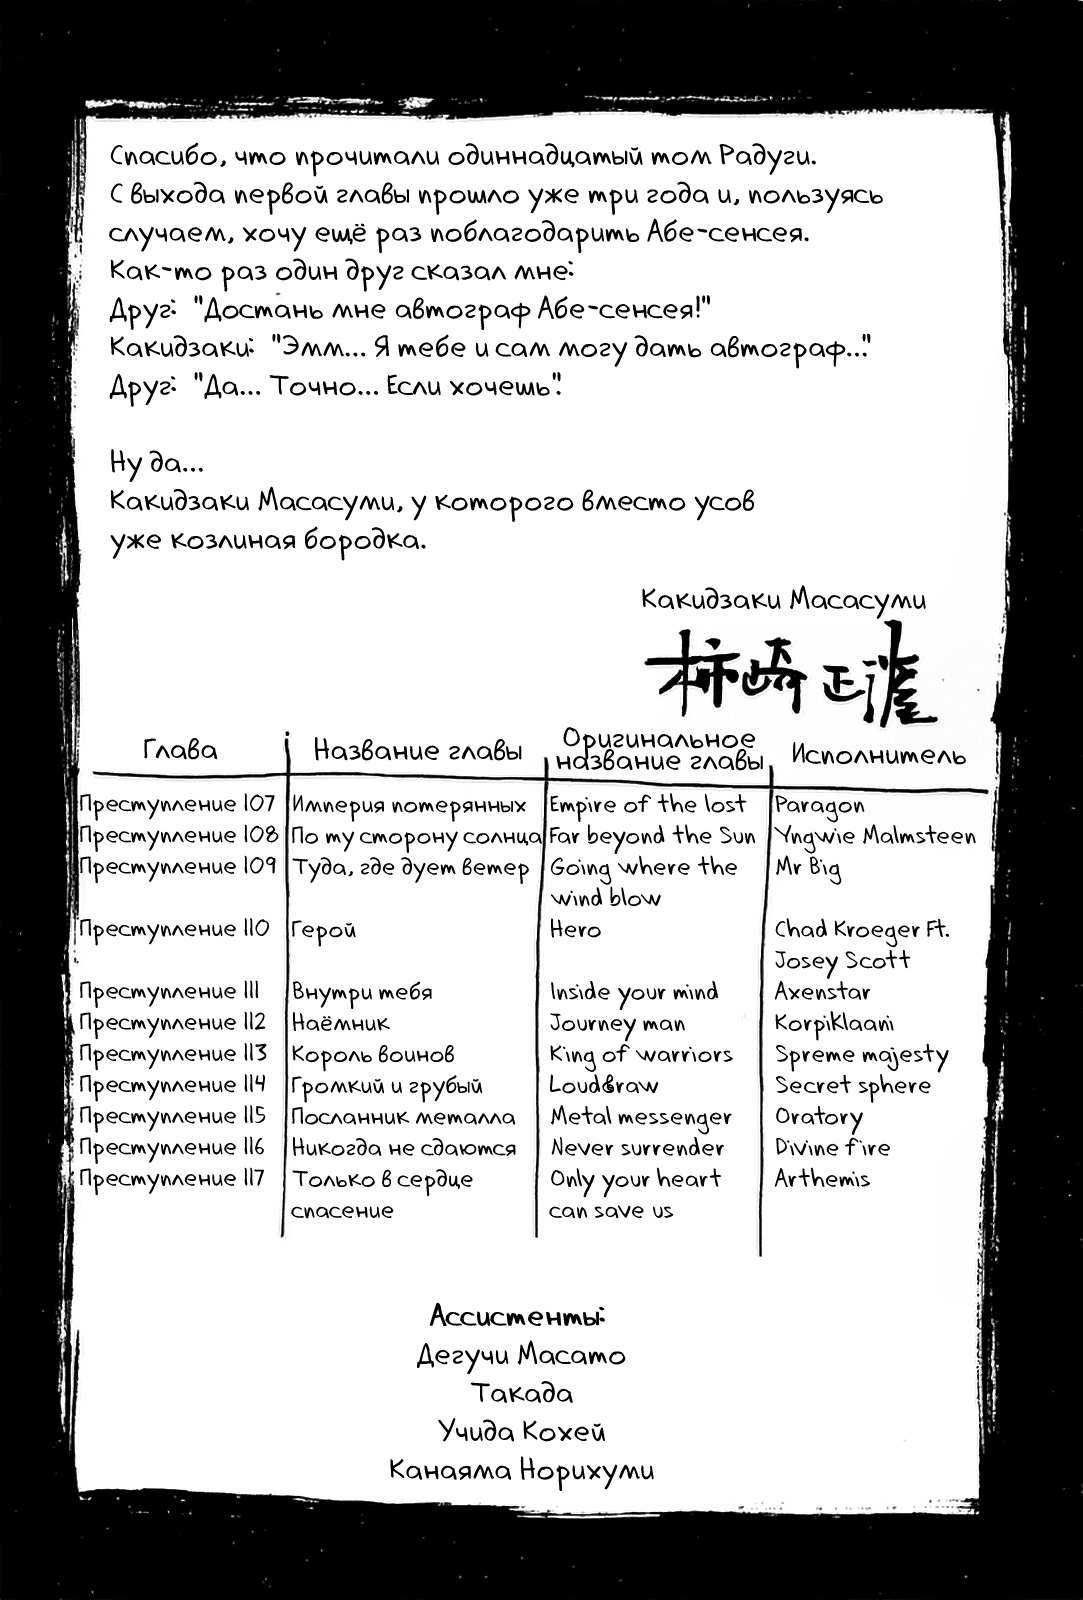 Спасибо, что прочитали одиннадцатый том Радуги.
С выхода первой главы прошло уже три года и, пользуясь
случаем, хочу ещё раз поблагодарить Абе-сенсея.
Как-то раз один друг сказал мне:
Друг: "Достань мне автограф Абе-сенсея!"
Какидзаки: "Эмм... Я тебе и сам могу дать автограф..."
Друг: "Да... Точно... Если хочешь".
Ну да...
Какидзаки Масасуми, у которого вместо усов
уже козлиная бородка.
Какидзаки Масасуми
柿崎正澄
Глава Название главы Оригинальное название главы Исполнитель
Преступление 107 Империя потерянных Empire of the lost Paragon
Преступление 108 По ту сторону солнца Far beyond the Sun Yngwie Malmsteen
Преступление 109 Туда, где дует ветер Going where the Mr Big
wind blow
Преступление 110 Герой Hero Chad Kroeger Ft.
Josey Scott
Преступление 111 Внутри тебя Inside your mind Axenstar
Преступление 112 Наёмник Journey man Korpiklaani
Преступление 113 Король воинов King of warriors Spreme majesty
Преступление 114 Громкий и грубый Loud&raw Secret sphere
Преступление 115 Посланник металла Metal messenger Oratory
Преступление 116 Никогда не сдаются Never surrender Divine fire
Преступление 117 Только в сердце Only your heart Arthemis
спасение can save us
Ассистенты:
Дегучи Масато
Такада
Учида Кохей
Канаяма Норихуми